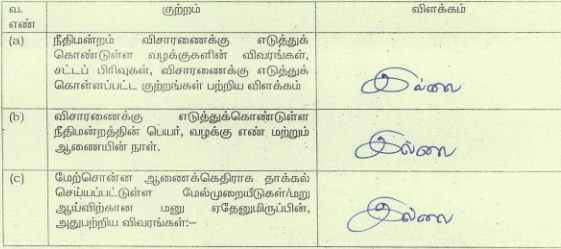 வ. எண் குற்றம் விளக்கம்
(a) நீதிமன்றம் விசாரணைக்கு எடுத்துக்
கொண்டுள்ள வழக்குகளின் விவரங்கள்,
சட்டப் பிரிவுகள், விசாரணைக்கு எடுத்துக்
கொள்ளப்பட்ட குற்றங்கள் பற்றிய விளக்கம்
இல்லை
(b) விசாரணைக்கு எடுத்துக்கொண்டுள்ள
நீதிமன்றத்தின் பெயர், வழக்கு எண் மற்றும்
ஆணையின் நாள்.
இல்லை
(c) மேற்சொன்ன ஆணைக்கெதிராக தாக்கல்
செய்யப்பட்டுள்ள மேல்முறையீடுகள்/மறு
ஆய்விற்கான மனு ஏதேனுமிருப்பின்,
அதுபற்றிய விவரங்கள்:–
இல்லை